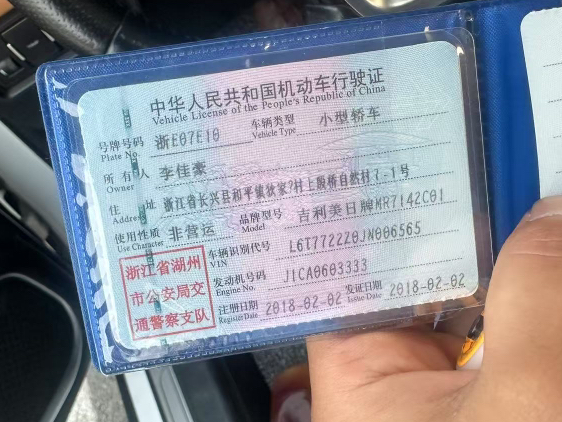 中华人民共和国机动车行驶证
Vehicle License of the People's Republic of China
号牌号码 浙E07E10 车辆类型 小型轿车
Plate No. Vehicle Type
所有人 李佳豪
Owner
住址 浙江省长兴县和平镇狄家?村上殿桥自然村7-1号
Address
使用性质 非营运 品牌型号 吉利美日牌MR7142C01
Use Character Model
浙江省湖州
市公安局交
通警察支队
车辆识别代号 L6T7722Z0JN006565
VIN
发动机号码 J1CA0603333
Engine No.
注册日期 2018-02-02 发证日期 2018-02-02
Register Date Issue Date